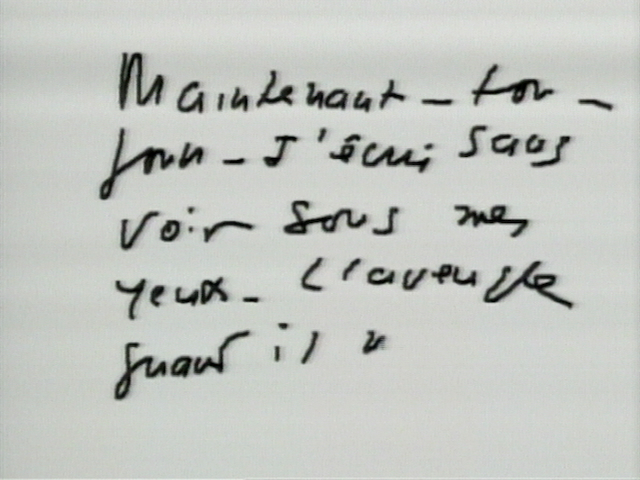 Maintenant - tou -
jours - J'écris sans
voir sous mes
yeux - L'aveugle
quand il